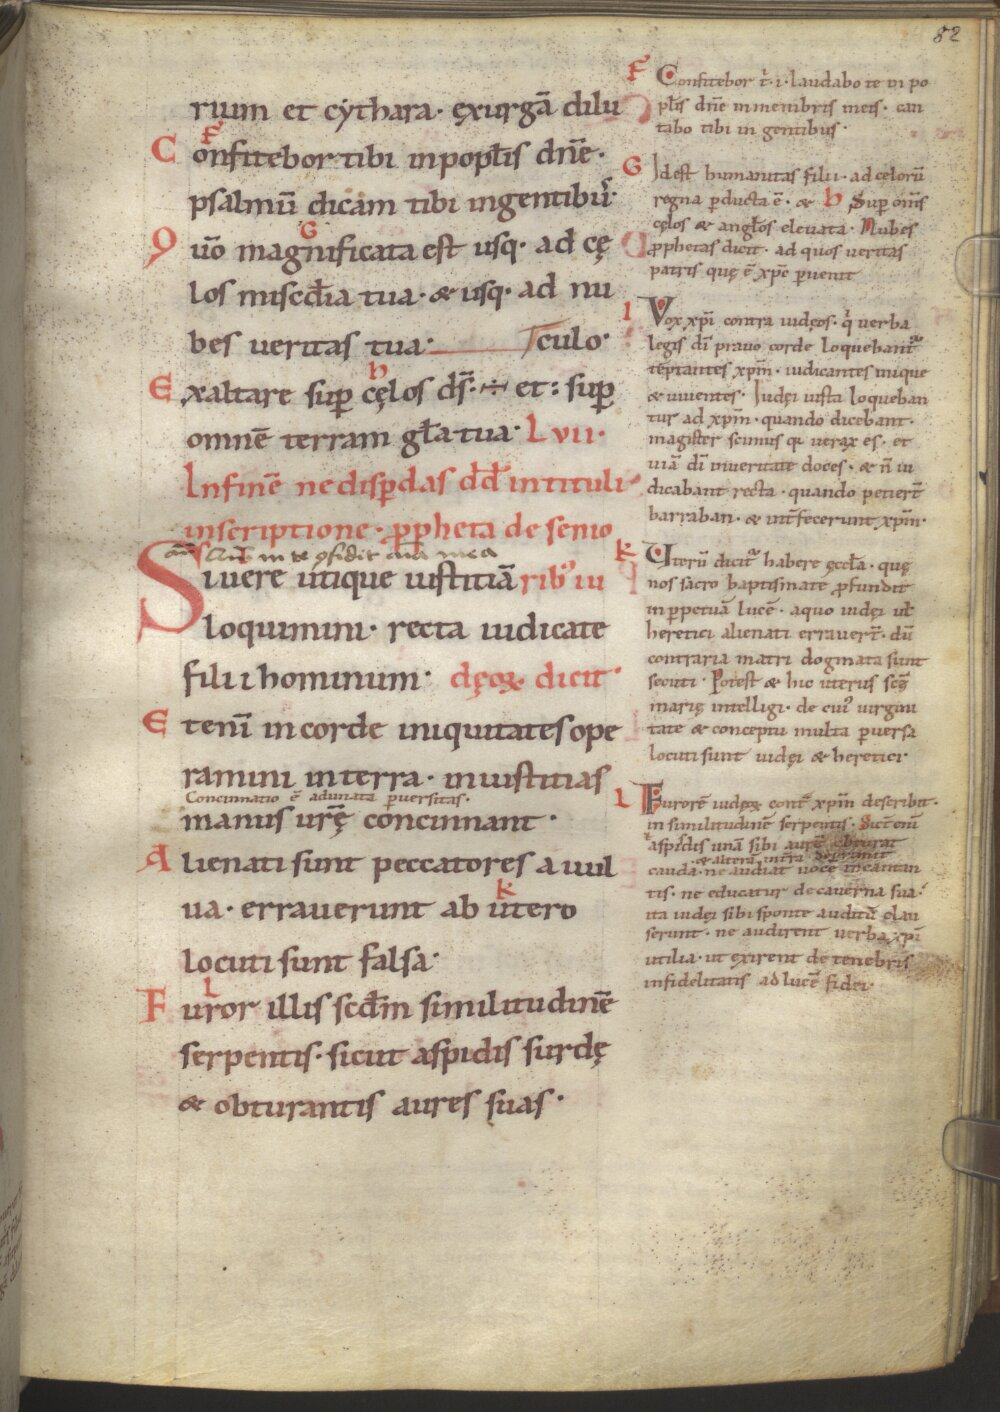 52
rium et cẏthara· ęxurgā dilu
Confitebor tibi in popl̄is dn̄e·
F
psalmū dicam tibi in gentibus·
Quō magnificata est usq· ad cę
G
los mis̄cdia tua· & usq· ad nu
bes ueritas tua· culo·
Exaltare sup cęlos ds̄· ÷ et: sup
h
omnē terram gl̄a tua· Lvii·
In finē ne disp̄das dd̄ in tituli
inscriptione· ꝓpheta de senio
an̄ in te ꝯfidit aīa mea
Si uere utique iustitiā ribꝰ iu
loquimini· recta iudicate
filii hominum· dęoꝝ dicit·
Etenī in corde iniquitates ope
ramini in terra· iniustitias
Concinnatio ē adunata puersitas·
manus ur̄ę concinnant·
Alienati sunt peccatores a uul
ua· errauerunt ab utero
k
locuti sunt falsa·
Furor illis scd̄m similitudinē
L
serpentis· sicut aspidis surdę
& obturantis aures suas·
F Confitebor t̄· i· laudabo te in po
pl̄is dn̄e in membris meis· can
tabo tibi in gentibus·
G Id est humanitas filii· ad celorū
regna pducta ē· & h Sup om̄s
cęlos & angl̄os eleuata· Nubes
ꝓphetas dicit· ad quos ueritas
patris quę ē xp̄c peruenit
I Vox xp̄i contra iudęos· q' uerba
legis dī prauo corde loquebantᷣ
tēptantes xp̄m· iudicantes inique
& uiuentes· Iudęi iusta loqueban
tur ad xp̄m· quando dicebant·
magister scimus qꝛ uerax es· et
uiā dī in ueritate doces· & n̄ iu
dicabant recta· quando petiert̄
barraban· & int̄fecerunt xp̄m·
k Uterū dicitᷣ habere ęccl̄a· quę
nos sacro baptismate ꝓfundit
in perpetuā lucē· a quo iudęi ul̄
heretici alienati errauert̄· dū
contraria matri dogmata sunt
secuti· Potest & hic uterus scę̄
marię intelligi· de cuiꝰ uirgini
tate & conceptu multa puersa
locuti sunt iudęi & heretici·
L Furorē iudęoꝝ cont̄ xp̄m describit·
in similitudinē serpentis· Sicut enī
aspidis unā sibi aurē obturat
& alterā in terra
cauda· ne audiat uocē incantan
tis· ne educatur de cauerna sua·
ita iudęi sibi sponte auditū clau
serunt· ne audirent uerba xp̄i
utilia· ut exirent de tenebris
infidelitatis ad lucē fidei·